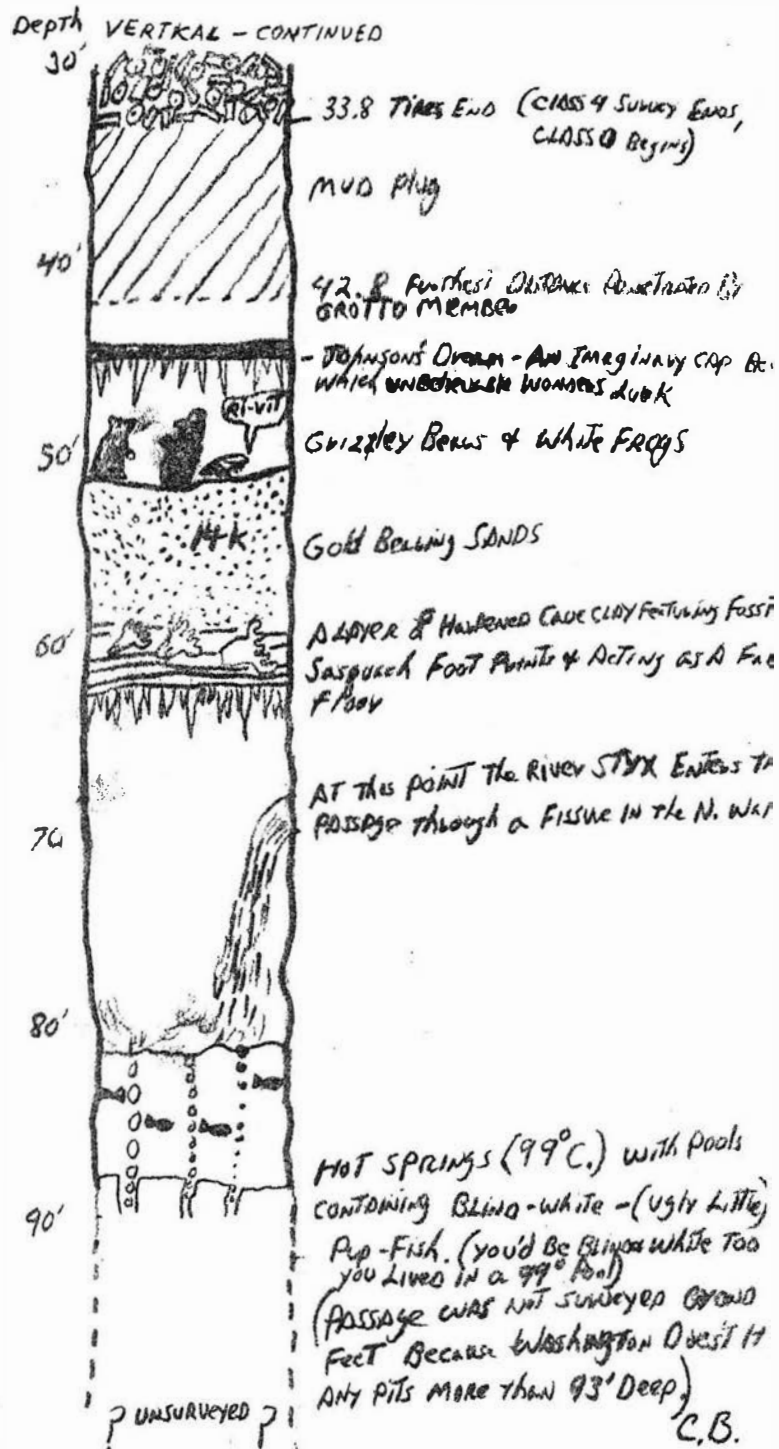 Depth VERTICAL - CONTINUED
30'
33.8 TIRES END (CLASS 4 SURVEY ENDS,
CLASS 0 Begins)
MUD Plug
40'
42.8 Furthest DISTANCE PENETRATED By
GROTTO MEMBER
- JOHNSON'S Dream - AN IMAGINARY CAP Be
which WONDERS LURK
RI-VIT
50'
Grizzley Bears & White FROGS
14K
Gold Bearing SANDS
60'
A LAYER of HARDENED CAVE CLAY FEATURING Foss
Sasquach FOOT Prints & ACTING AS A FA
Floor
AT this POINT The RIVER STYX ENTERS TH
PASSAGE through a FISSURE IN the N. WA
70
80'
HOT SPRINGS (99°C.) with Pools
90'
CONTAINING BLIND-WHITE-(Ugly Little)
Pup-FISH. (you'd Be BLIND & WHITE TOO
you LIVED in a 99° Pool)
(PASSAGE WAS NOT SURVEYED EYOND
FEET Because WASHINGTON Does't H
ANY PITS MORE THAN 93' DEEP.)
? UNSURVEYED ?
C.B.